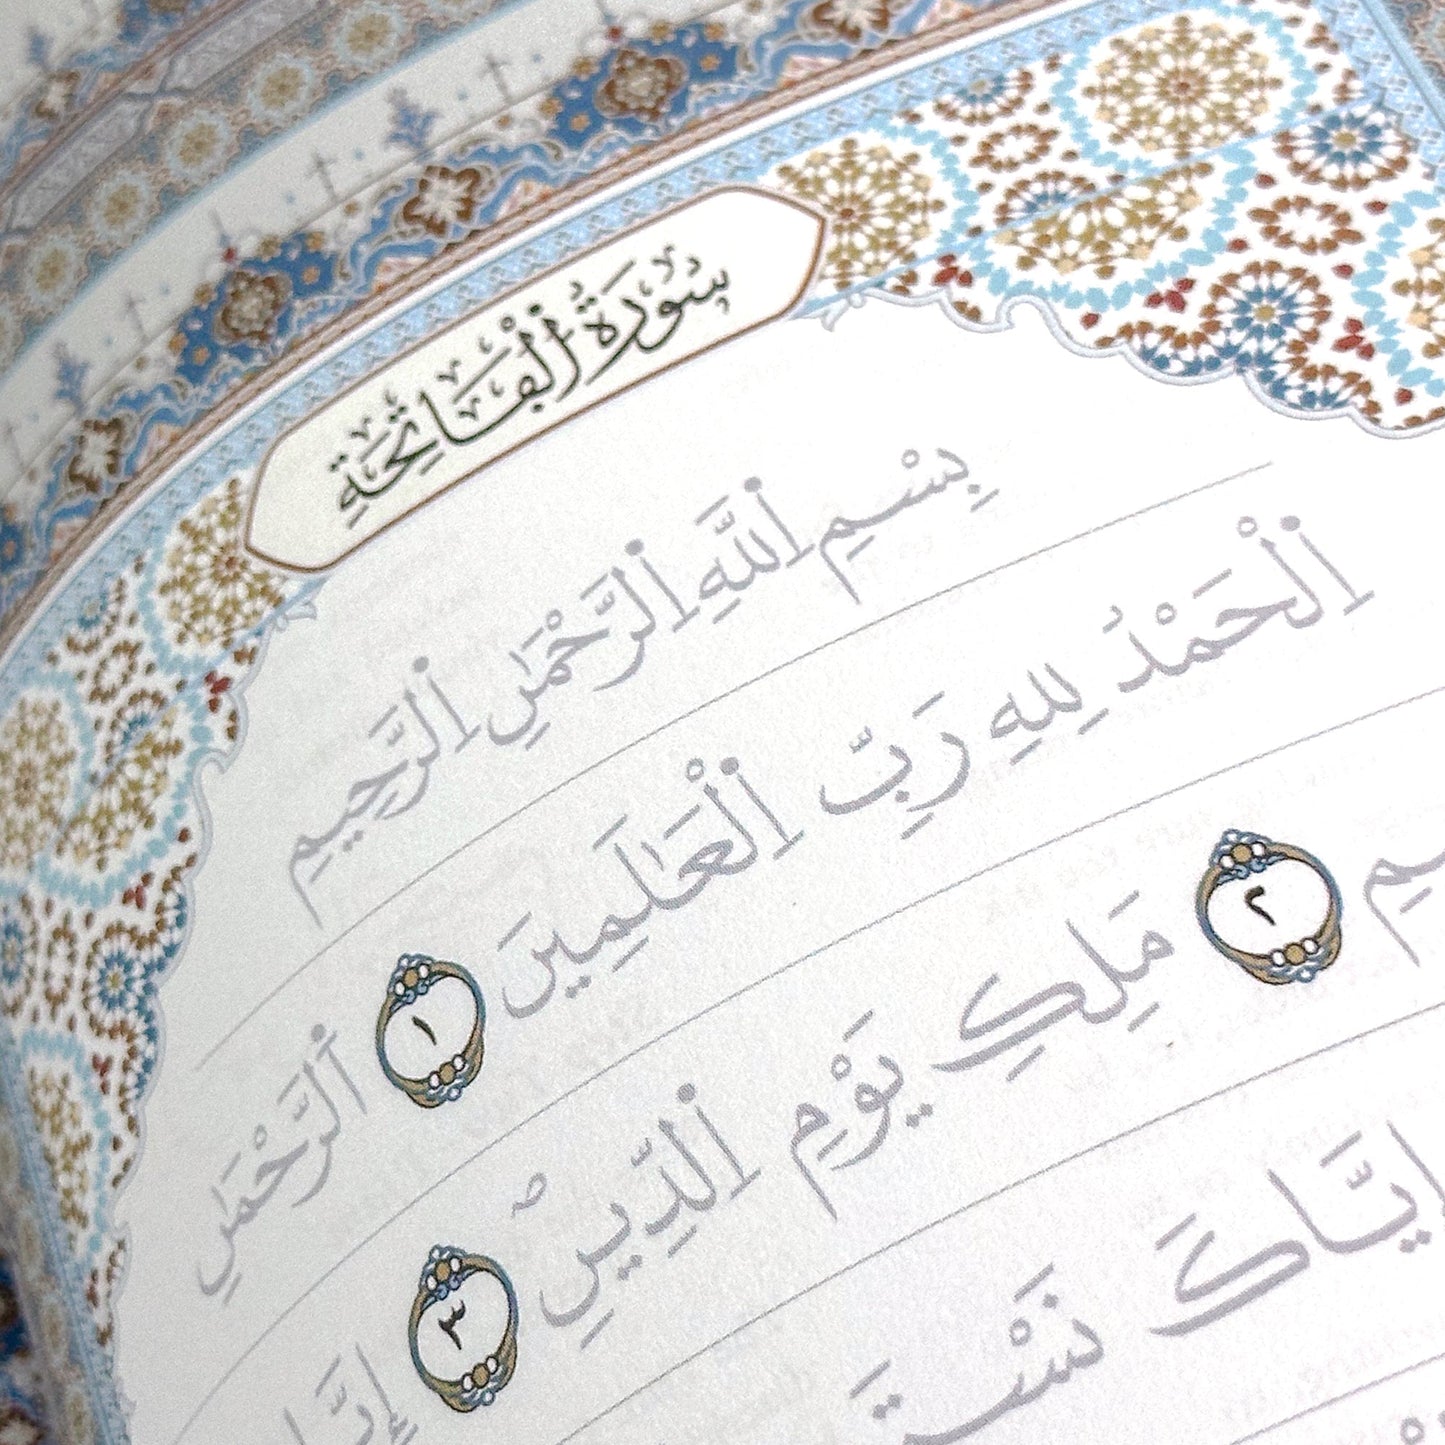 سُورَةُ اَ۬لْفَاتِحَةِ
بِسْمِ اِ۬للَّهِ اِ۬لرَّحْمَٰنِ اِ۬لرَّحِيمِ
اِ۬لْحَمْدُ لِلهِ رَبِّ اِ۬لْعَٰلَمِينَ ١ اَ۬لرَّحْمَٰنِ
مَلِكِ يَوْمِ اِ۬لدِّينِۖ ٣ ٢
إِيَّاكَ